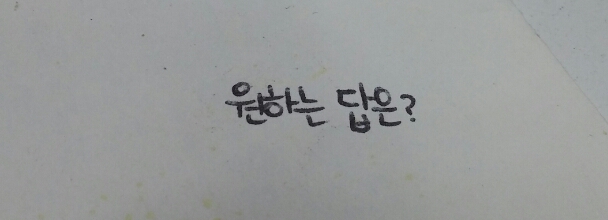 원하는 답은?